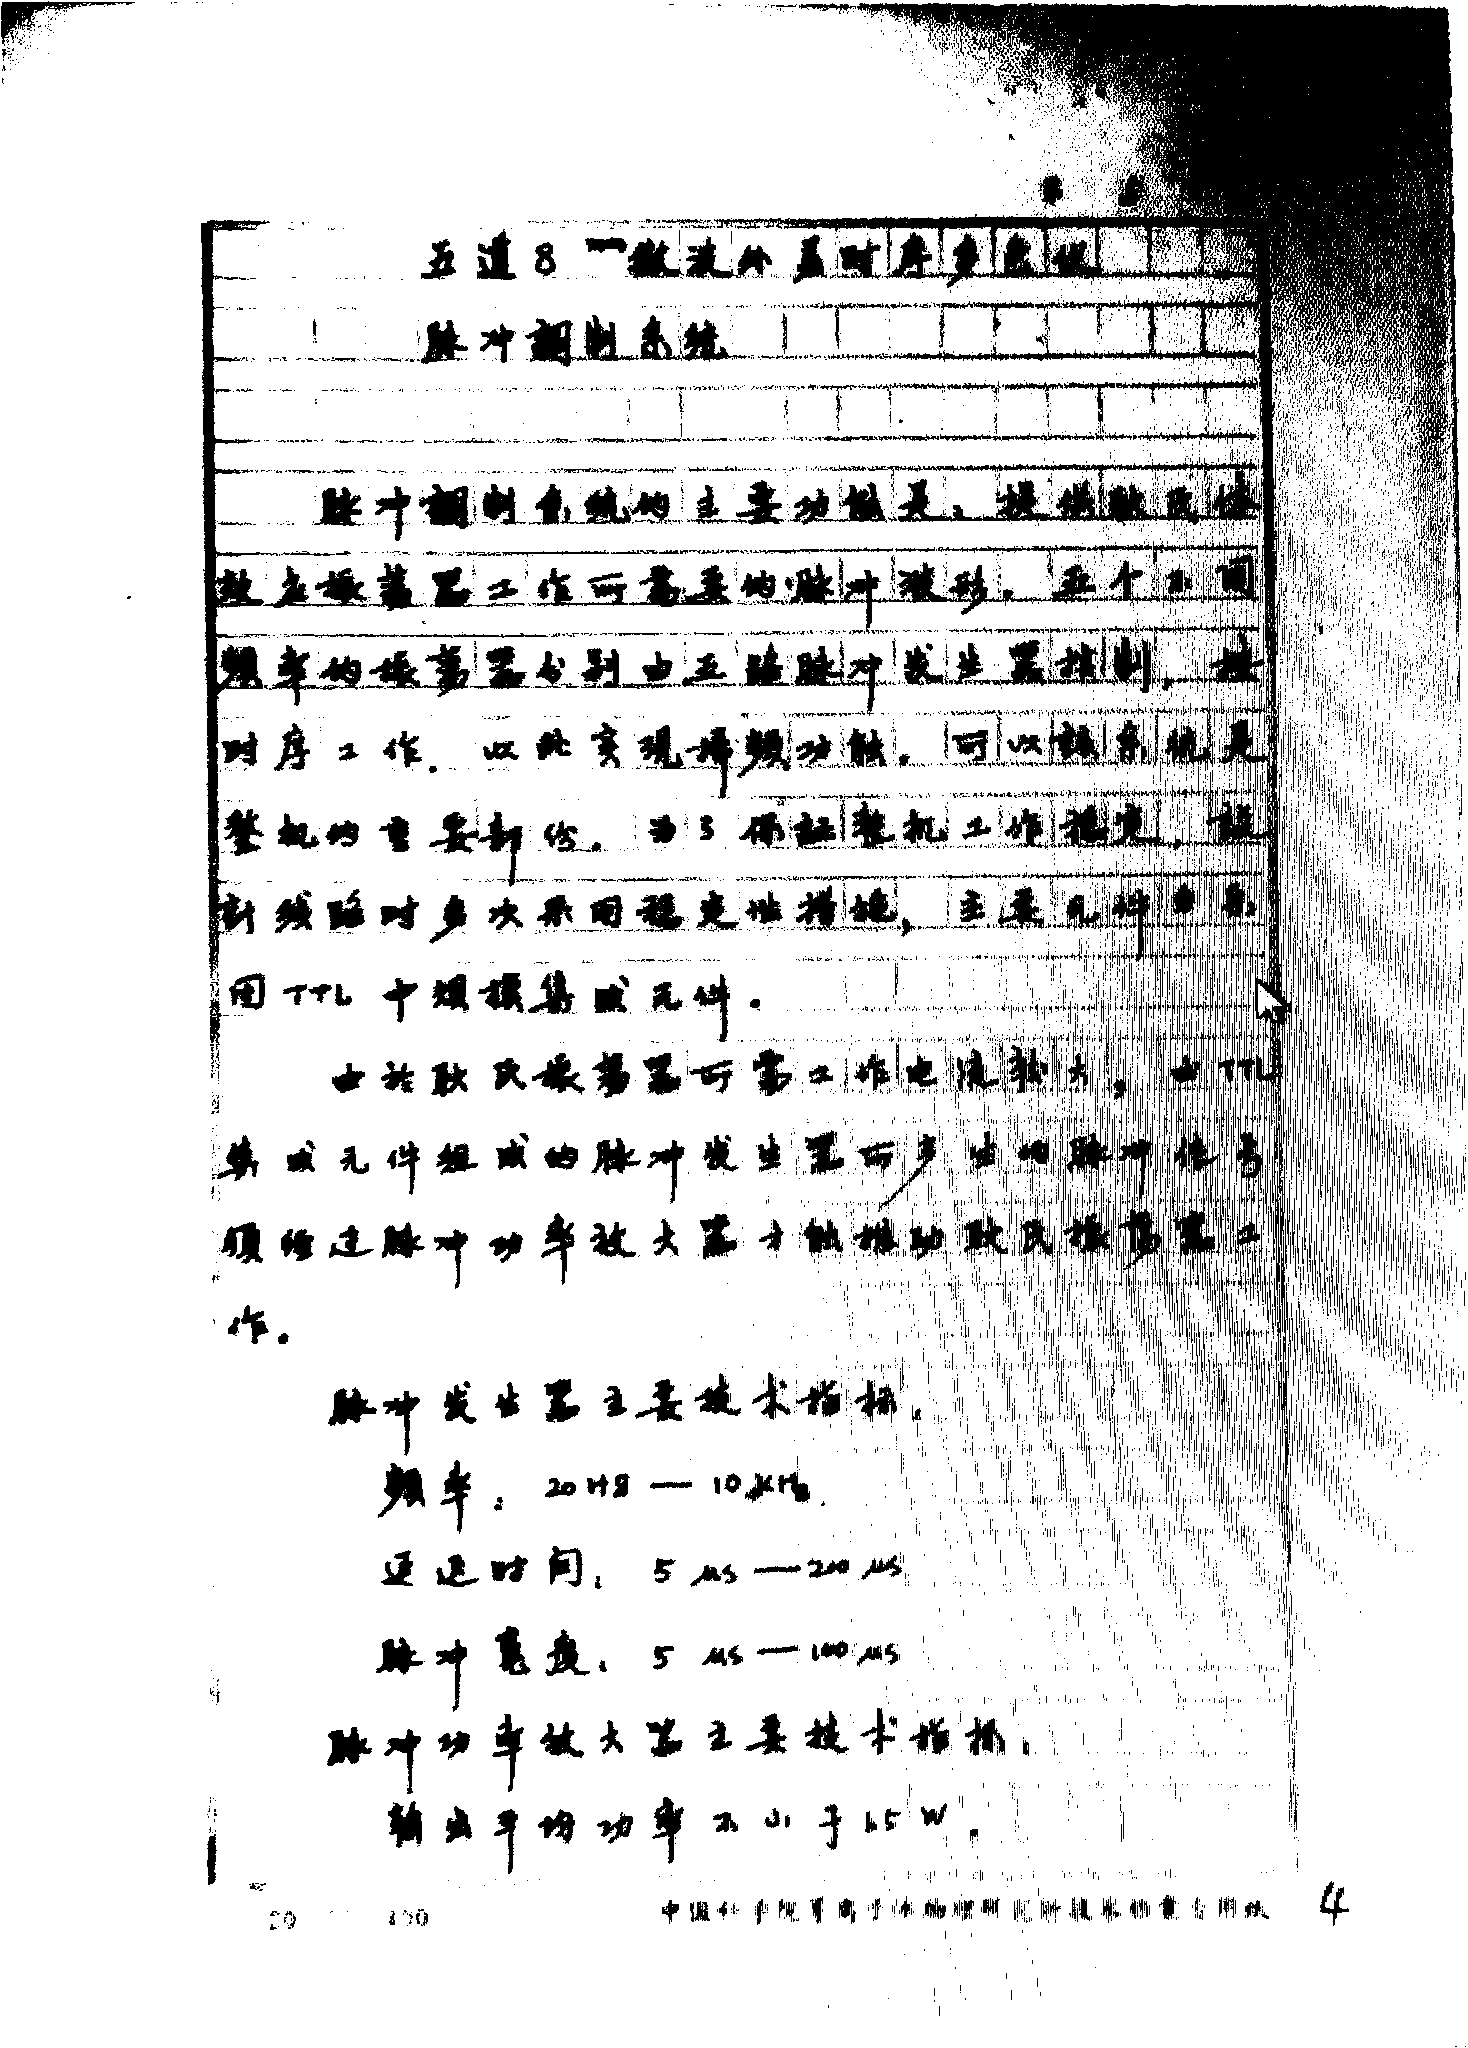 五道8mm微波外差时序多道仪
脉冲调制系统
脉冲调制系统的主要功能是：提供耿氏体
效应振荡器工作所需要的脉冲波形。五个不同
频率的振荡器分别由五路脉冲发生器控制，按
时序工作，以此实现扫频功能。可以说系统是
整机的重要部份。为了保证整机工作稳定，设
计线路时多次采用稳定性措施，主要元件多采
用TTL中规模集成元件。
由於耿氏振荡器所需工作电流较大，由TTL
集成元件组成的脉冲发生器所产生的脉冲信号
须经过脉冲功率放大器才能推动耿氏振荡器工
作。
脉冲发生器主要技术指标：
频率：20HZ — 10KHz
延迟时间：5 μs — 200 μs
脉冲宽度：5 μs — 100 μs
脉冲功率放大器主要技术指标：
输出平均功率不小于1.5W。
中国科学院等离子体物理研究所技术档案专用纸
4